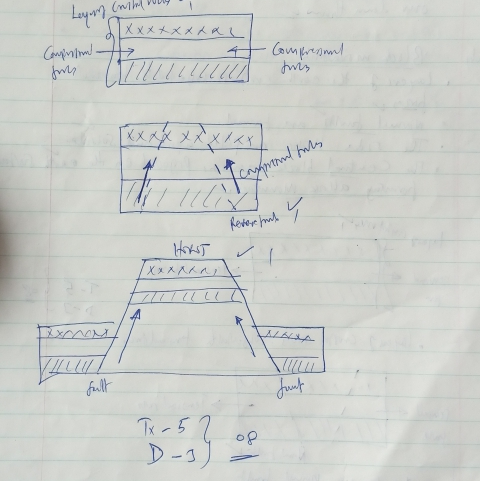 Layers of Crustal rocks
Compressional
forces
Compressional
forces
Compressional forces
Reverse fault
HORST
fault
fault
Tx - 5
D - 3
08